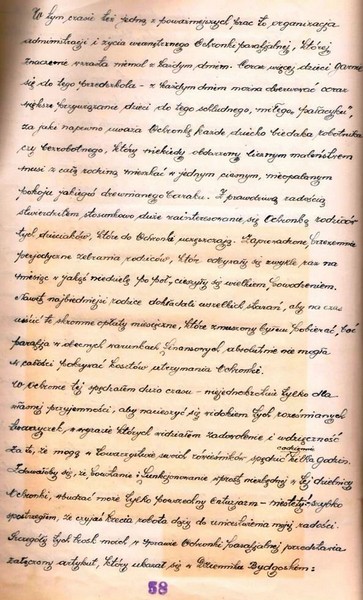 W tym czasie też jedną z poważniejszych prac to organizacja
administracji i życia wewnętrznego Ochronki parafjalnej, której
znaczenie wzrasta niemal z każdym dniem. Coraz więcej dzieci garnie
się do tego przedszkola - z każdym dniem można obserwować coraz
większe przywiązanie dzieci do tego schludnego, miłego, "pałacyku"
za jaki napewno uważa Ochronkę każde dziecko biedaka robotnika
czy bezrobotnego, który niekiedy obdarzony licznym maleństwem
musi z całą rodziną mieszkać w jednym ciasnym, nieopalanym
pokoju jakiegoś drewnianego baraku. Z prawdziwą radością
stwierdzałem, stosunkowo duże zainteresowanie się Ochronką rodziców
tych dzieciaków, które do Ochronki uczęszczają. Zaprowadzone, przezemnie
perjodyczne zebrania rodziców, które odbywały się zwykle raz na
miesiąc w jakąś niedzielę po poł, cieszyły się wielkiem powodzeniem.
Nawet najbiedniejsi rodzice dokładali wszelkich starań, aby na czas
uiścić te skromne opłaty miesięczne, które zmuszony byłem pobierać, boć
parafja w obecnych warunkach finansowych, absolutnie nie mogła
w całości pokrywać kosztów utrzymania Ochronki.
W Ochronce tej spędzałem dużo czasu - niejednokrotnie tylko dla
własnej przyjemności, aby nacieszyć się widokiem tych roześmianych
twarzyczek, z wyrazie których widziałem zadowolenie i wdzięczność
za to, że mogą w towarzystwie swoich rówieśników spędzić codziennie kilka godzin.
Zdawałoby się, że powstanie i funkcjonowanie sprawą niezbędnej w tej dzielnicy
Ochronki, wzbudzać może tylko powszechny entuzjazm - niestety szybko
spostrzegłem, że czyjaś krecia robota dąży do unicestwienia mojej radości.
Szczegóły tych kość. moch. w sprawie Ochronki parafjalnej przedstawia
załączony artykuł, który ukazał się w Dzienniku Bydgoskiem:
58